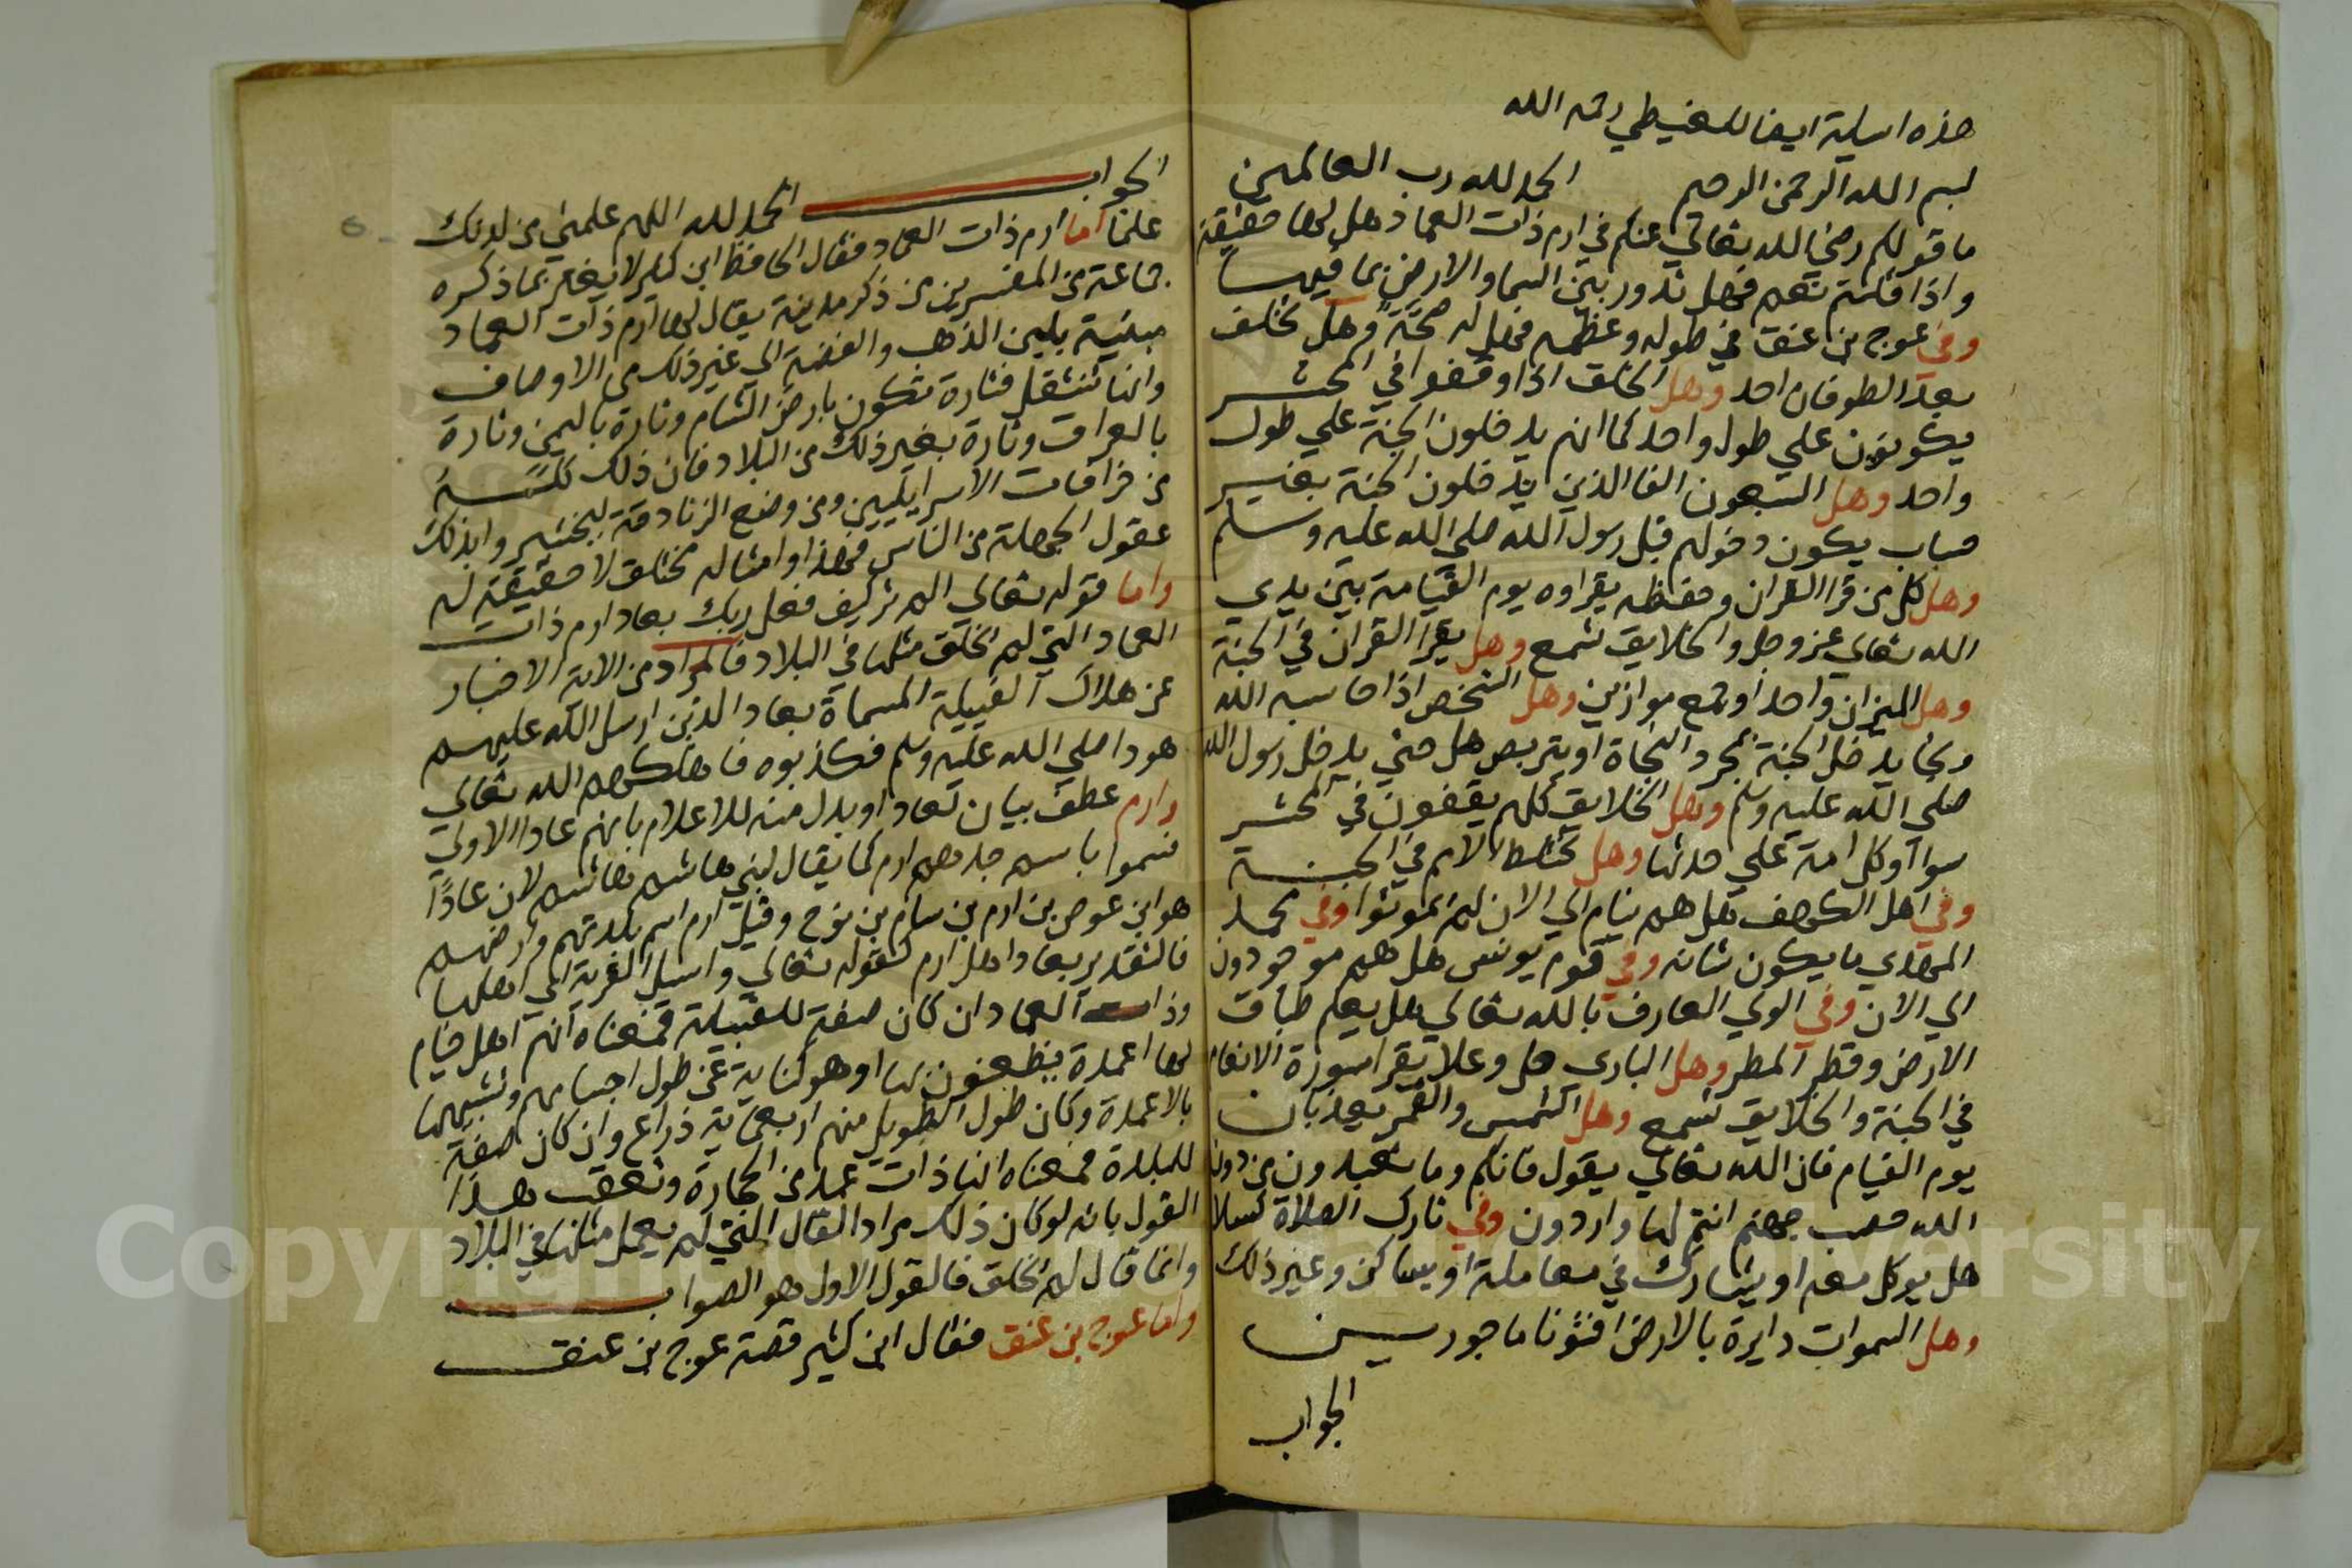 هذه اسيلة ايضا للغيطي رحمه الله
بسم الله الرحمن الرحيم الحمد لله رب العالمين
ما قولكم رضي الله تعالي عنكم في ارم ذات العماد هل لها حقيقة
واذا قلتم نعم فهل تدور بين السما والارض بما فيها
وفي عوج بن عنق في طوله وعظمه فهل له صحة وهل تخلف
بعد الطوفان احد وهل الخلق اذا وقفوا في المحشر
يكونون علي طول واحد كما انهم يدخلون الجنة علي طول
واحد وهل السبعون الفا الذين يدخلون الجنة بغير
حساب يكون دخولهم قبل رسول الله صلي الله عليه وسلم
وهل كل من قرا القران وحفظه يقراوه يوم القيامة بين يدي
الله تعالي عز وجل والخلايق تسمع وهل يقرا القران في الجنة
وهل الميزان واحد او جمع موازين وهل الشخص اذا حاسبه الله
ونجا يدخل الجنة بمجرد النجاة او يتربص هل حتي يدخل رسول الله
صلي الله عليه وسلم وهل الخلايق كلهم يقفون في المحشر
سوا او كل امة علي حدتها وهل تختلط الامم في الجنة
وفي اهل الكهف هل هم نيام الي الان لم يموتوا وفي محمد
المهدي ما يكون شانه وفي قوم يونس هل هم موجودون
الي الان وفي الولي العارف بالله تعالي هل يعلم طباق
الارض وقطر المطر وهل الباري جل وعلا يقرا سورة الانعام
في الجنة والخلايق تسمع وهل الشمس والقمر يعذبان
يوم القيام فان الله تعالي يقول فانكم وما تعبدون من دون
الله حصب جهنم انتم لها واردون وفي تارك الصلاة كسلا
هل يوكل معه او يشارك في معاملة او يساكن وغير ذلك
وهل السموات دايرة بالارض افتونا ماجورين
الجواب
الجواب الحمد لله اللهم علمني من لدنك
علما اما ارم ذات العماد فقال الحافظ ابن كثير لا يغتر بما ذكره
جماعة من المفسرين من ذكر مدينة يقال لها ارم ذات العماد
مبنية بلبن الذهب والفضة الي غير ذلك من الاوصاف
وانها تنتقل فتارة تكون بارض الشام وتارة باليمن وتارة
بالعراق وتارة بغير ذلك من البلاد فان ذلك كله
من خرافات الاسرايليين ومن وضع الزنادقة ليختبروا بذلك
عقول الجهلة من الناس فهذا وامثاله مختلق لا حقيقة له
واما قوله تعالي الم تر كيف فعل ربك بعاد ارم ذات
العماد التي لم يخلق مثلها في البلاد فالمراد من الاية الاخبار
عن هلاك القبيلة المسماة بعاد الذين ارسل الله عليهم
هودا صلي الله عليه وسلم فكذبوه فاهلكهم الله تعالي
وارم عطف بيان لعاد او بدل منه للاعلام بانهم عادا الاولي
فسموا باسم جدهم ارم كما يقال لبني هاشم هاشم لان عادًا
هو ابن عوص بن ارم بن سام بن نوح وقيل ارم اسم بلدتهم وارضهم
فالتقدير بعاد اهل ارم كقوله تعالي واسيل القرية اي اهلها
وذات العماد ان كان صفة للقبيلة فمعناه انهم اهل خيام
لها اعمدة يظعنون بها او هو كناية عن طول اجسامهم وتشبيهها
بالاعمدة وكان طول الطويل منهم اربعماية ذراع وان كان صفة
للبلدة فمعناه انها ذات عمد من الحجارة وتعقب هذا
القول بانه لو كان ذلك مرادا لقال التي لم يعمل مثلها في البلاد
وانما قال لم يخلق فالقول الاول هو الصواب
واما عوج بن عنق فقال ابن كثير قصة عوج بن عنق
Copyright © King Saud University